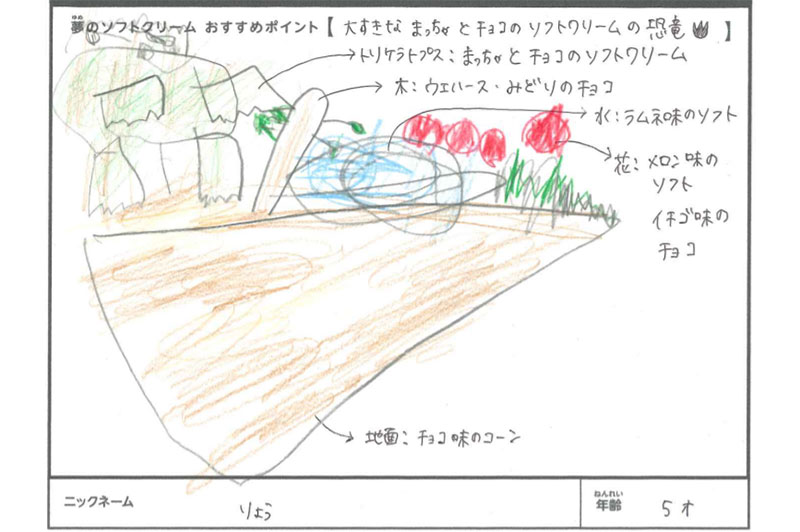 夢のソフトクリーム おすすめポイント【 大すきな まっちゃ と チョコの ソフトクリームの 恐竜 】
ゆめ
トリケラトプス：まっちゃと チョコのソフトクリーム
木：ウエハース・みどりのチョコ
水：ラムネ味のソフト
花：メロン味の
ソフト
イチゴ味の
チョコ
地面：チョコ味のコーン
ニックネーム りょう
ねんれい
年齢 5才